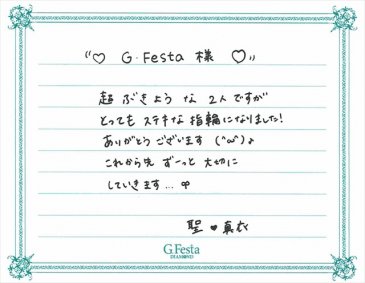 “♡ G.Festa 様 ♡”
超 ぶきような 2人ですが
とっても ステキな 指輪になりました!
ありがとうございます (^ω^)♪
これから先 ずーっと 大切に
していきます…∞
聖♥真衣
G.Festa
DIAMOND